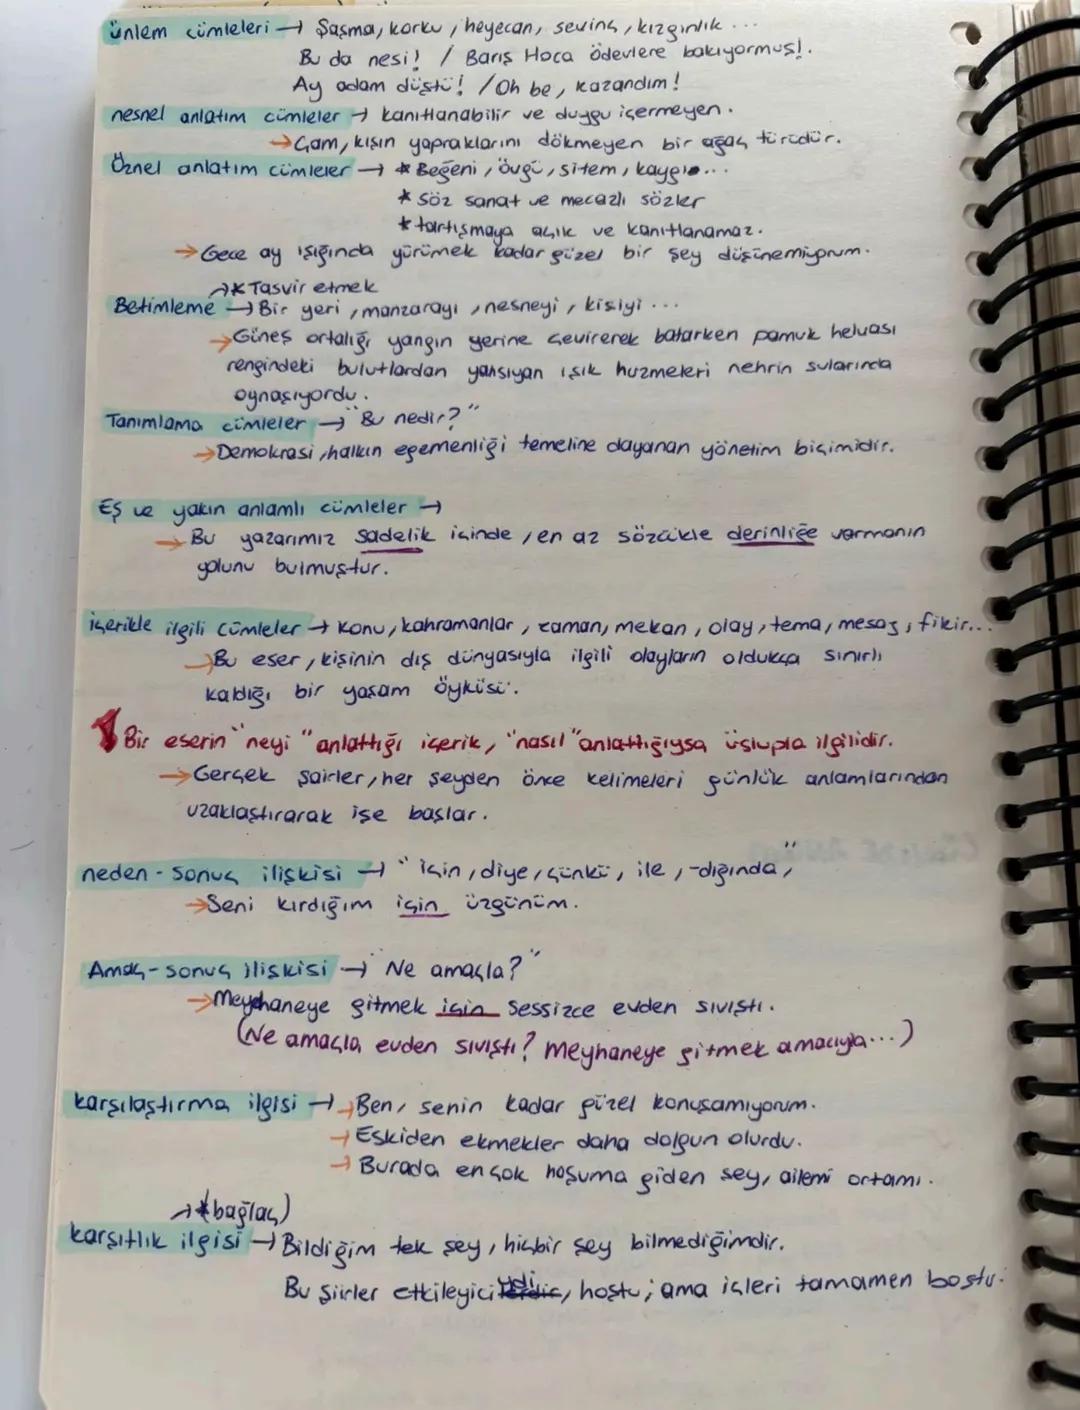 ünlem cümleleri → Şaşma, korku, heyecan, sevinç, kızgınlık ...
Bu da nesi! / Barış Hoca ödevlere bakıyormuş!.
Ay adam düştü! / Oh be, kazandım!
nesnel anlatım cümleler → kanıtlanabilir ve duygu içermeyen.
→ Çam, kışın yapraklarını dökmeyen bir ağaç türüdür.
Öznel anlatım cümleler → * Beğeni, övgü, sitem, kaygı...
* söz sanat ve mecazlı sözler
* tartışmaya açık ve kanıtlanamaz.
→ Gece ay ışığında yürümek kadar güzel bir şey düşünemiyorum.
→ * Tasvir etmek
Betimleme → Bir yeri, manzarayı, nesneyi, kişiyi ...
→ Güneş ortalığı yangın yerine çevirerek batarken pamuk helvası
rengindeki bulutlardan yansıyan ışık huzmeleri nehrin sularında
oynaşıyordu.
Tanımlama cümleler → "Bu nedir?"
→ Demokrasi, halkın egemenliği temeline dayanan yönetim biçimidir.
Eş ve yakın anlamlı cümleler →
→ Bu yazarımız sadelik içinde, en az sözcükle derinliğe varmanın
yolunu bulmuştur.
içerikle ilgili cümleler → Konu, kahramanlar, zaman, mekan, olay, tema, mesaj, fikir...
→ Bu eser, kişinin dış dünyasıyla ilgili olayların oldukça sınırlı
kaldığı bir yaşam öyküsü.
Bir eserin "neyi" anlattığı içerik, "nasıl" anlattığıysa üslupla ilgilidir.
→ Gerçek şairler, her şeyden önce kelimeleri günlük anlamlarından
uzaklaştırarak işe başlar.
neden - sonuç ilişkisi → "için, diye, çünkü, ile, -dığında,"
→ Seni kırdığım için üzgünüm.
Amaç - sonuç ilişkisi → "Ne amaçla?"
→ Meyhaneye gitmek için sessizce evden sıvıştı.
(Ne amaçla evden sıvıştı? Meyhaneye gitmek amacıyla...)
karşılaştırma ilgisi → → Ben, senin kadar güzel konuşamıyorum.
→ Eskiden ekmekler daha dolgun olurdu.
→ Burada en çok hoşuma giden şey, ailemi ortamı.
→ * bağlaç)
karşıtlık ilgisi → Bildiğim tek şey, hiçbir şey bilmediğimdir.
Bu şiirler etkileyiciydi, hoştu; ama içleri tamamen boştu.